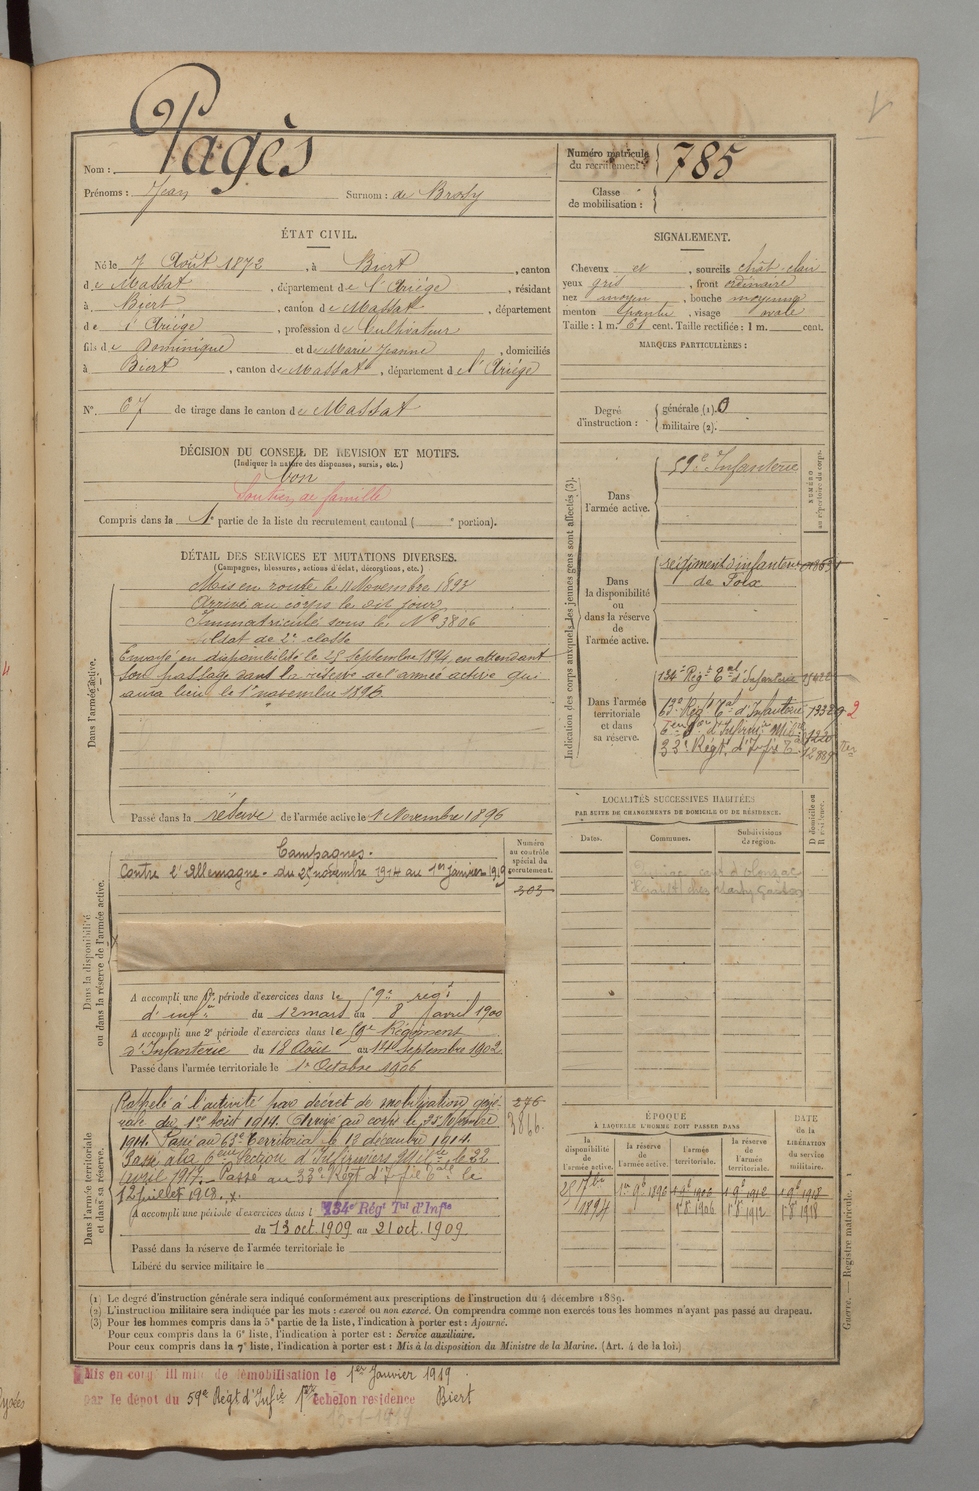 Pagès
Nom :
Prénoms : Jean Surnom : de Brosy
Numéro matricule du recrutement : 785
Classe de mobilisation :
ÉTAT CIVIL.
Né le 7 Août 1872, à Biert, canton
de Massat, département de l'Ariége, résidant
à Biert, canton de Massat, département
de l'Ariége, profession de Cultivateur
fils de Dominique et de Marie Jeanne, domiciliés
à Biert, canton de Massat, département de l'Ariége
N° 67 de tirage dans le canton de Massat
SIGNALEMENT.
Cheveux et, sourcils chât-clair
yeux gris, front ordinaire
nez moyen, bouche moyenne
menton pointu, visage ovale
Taille : 1 m. 61 cent. Taille rectifiée : 1 m. cent.
MARQUES PARTICULIÈRES :
Degré d'instruction : générale (1). 0
militaire (2).
DÉCISION DU CONSEIL DE REVISION ET MOTIFS.
(Indiquer la nature des dispenses, sursis, etc.)
bon
Soutien de famille
Compris dans la 1e partie de la liste du recrutement cantonal ( e portion).
DÉTAIL DES SERVICES ET MUTATIONS DIVERSES.
(Campagnes, blessures, actions d'éclat, décorations, etc.)
Dans l'armée active.
Mis en route le 11 Novembre 1893
Arrivé au corps le dit jour
Immatriculé sous le N° 3806
Soldat de 2e classe
Envoyé en disponibilité le 25 Septembre 1894, en attendant
son passage dans la réserve de l'armée active qui
aura lieu le 1er novembre 1896
Passé dans la réserve de l'armée active le 1 Novembre 1896
Indication des corps auxquels les jeunes gens sont affectés (3).
NUMÉRO au répertoire du corps.
Dans l'armée active.
59e Infanterie
Dans la disponibilité ou dans la réserve de l'armée active.
régiment d'infanterie
de Foix
Dans l'armée territoriale et dans sa réserve.
134e Régt Tal d'Infanterie 15422
63e Régt Tal d'Infanterie
33e Régt d'Infie Tale
LOCALITÉS SUCCESSIVES HABITÉES
PAR SUITE DE CHANGEMENTS DE DOMICILE OU DE RÉSIDENCE.
Dates. Communes. Subdivisions de région. D domicile ou R résidence.
Dans la disponibilité ou dans la réserve de l'armée active.
Numéro au contrôle spécial du recrutement.
303
Campagnes.
Contre l'Allemagne. du 25 novembre 1914 au 1er janvier 1919
A accompli une 1re période d'exercices dans le 59e régt
d'infie du 12 mars au 8 avril 1900
A accompli une 2e période d'exercices dans le 59e Régiment
d'Infanterie du 18 Août au 14 septembre 1902
Passé dans l'armée territoriale le 1er Octobre 1906
Dans l'armée territoriale et dans sa réserve.
276
3866.
Rappelé à l'activité par décret de mobilisation géné-
rale du 1er Août 1914. Arrivé au corps le 25 Novembre
1914. Passé au 63e Territorial le 12 décembre 1914.
Passé à la 6eme Section d'Infirmiers Milres le 22
avril 1917. Passé au 33e Régt d'Infie Tale le
12 juillet 1918.
A accompli une période d'exercices dans l 134e Régt Tal d'Infie
du 13 oct. 1909 au 21 oct. 1909
Passé dans la réserve de l'armée territoriale le
Libéré du service militaire le
ÉPOQUE
À LAQUELLE L'HOMME DOIT PASSER DANS
la disponibilité de l'armée active. la réserve de l'armée active. l'armée territoriale. la réserve de l'armée territoriale.
DATE de la LIBÉRATION du service militaire.
25 7bre 1894 1er 9b 1896 1 9b 1906 1 9b 1912 1 9b 1918
1 8b 1906 1 8b 1912 1 8b 1918
(1) Le degré d'instruction générale sera indiqué conformément aux prescriptions de l'instruction du 4 décembre 1889.
(2) L'instruction militaire sera indiquée par les mots : exercé ou non exercé. On comprendra comme non exercés tous les hommes n'ayant pas passé au drapeau.
(3) Pour les hommes compris dans la 5e partie de la liste, l'indication à porter est : Ajourné.
Pour ceux compris dans la 6e liste, l'indication à porter est : Service auxiliaire.
Pour ceux compris dans la 7e liste, l'indication à porter est : Mis à la disposition du Ministre de la Marine. (Art. 4 de la loi.)
Guerre. — Registre matricule.
Mis en congé illimité de démobilisation le 1er Janvier 1919
par le dépôt du 59e Régt d'Infie 1er échelon résidence Biert